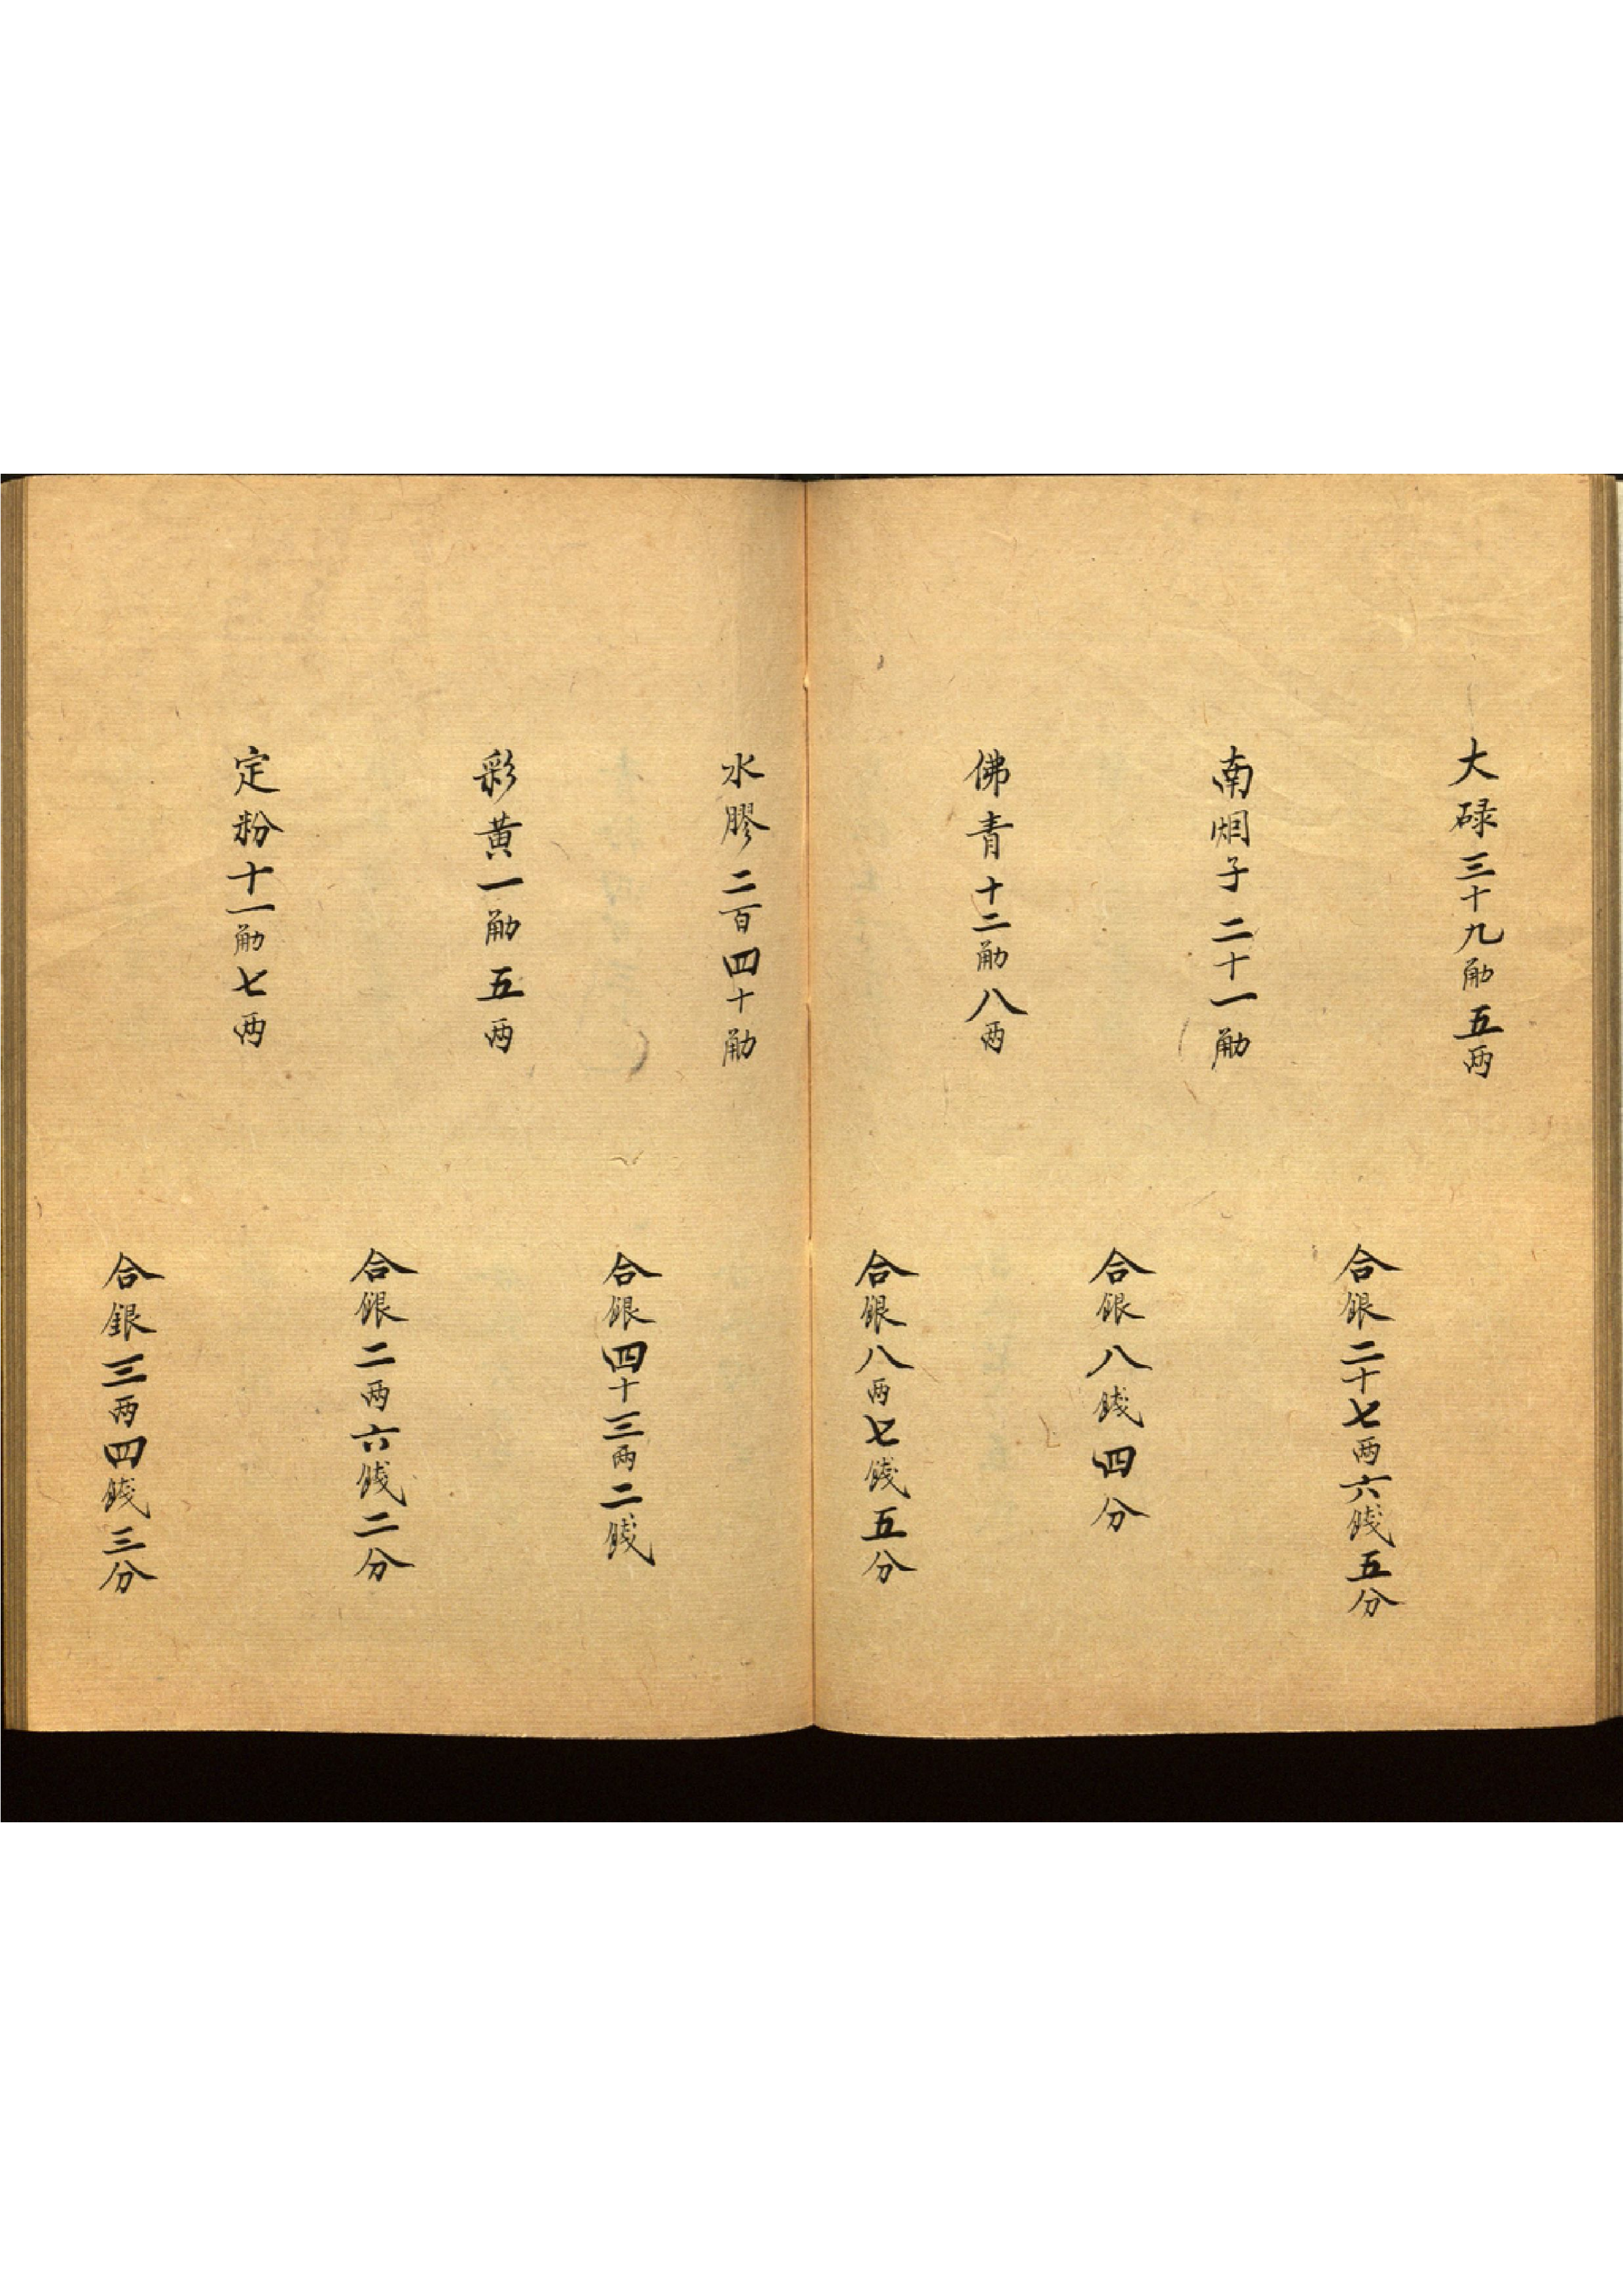 大碌三十九觔五両
合銀二十七両六錢五分
南烟子二十一觔
合銀八錢四分
佛青十二觔八両
合銀八両七錢五分
水膠二百四十觔
合銀四十三両二錢
彩黄一觔五両
合銀二両六錢二分
定粉十一觔七両
合銀三両四錢三分